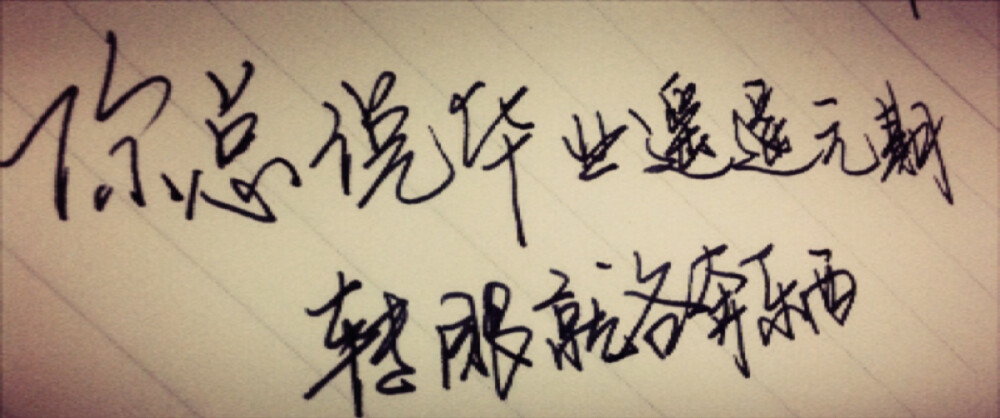 你总说毕业遥遥无期
转眼就各奔东西